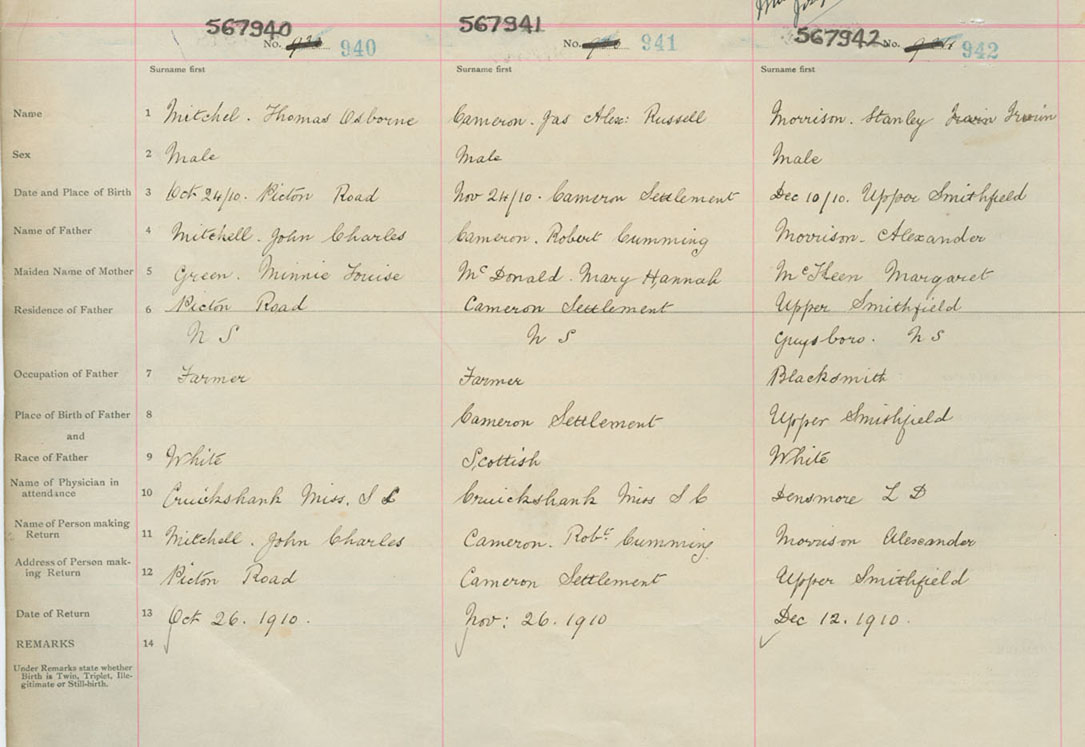 567940 567941 567942
No. 940 No. 941 No. 942
Surname first Surname first Surname first
Name 1 Mitchel. Thomas Osborne Cameron. Jas Alex: Russell Morrison. Stanley Irwin Irwin
Sex 2 Male Male Male
Date and Place of Birth 3 Oct 24/10. Picton Road Nov 24/10. Cameron Settlement Dec 10/10. Upper Smithfield
Name of Father 4 Mitchell. John Charles Cameron. Robert Cumming Morrison. Alexander
Maiden Name of Mother 5 Green. Minnie Louise McDonald. Mary Hannah McKeen Margaret
Residence of Father 6 Picton Road Cameron Settlement Upper Smithfield
N S N S Guysboro. N S
Occupation of Father 7 Farmer Farmer Blacksmith
Place of Birth of Father 8 Cameron Settlement Upper Smithfield
and
Race of Father 9 White Scottish White
Name of Physician in
attendance 10 Cruickshank Miss. S C Cruickshank Miss S C Densmore L D
Name of Person making
Return 11 Mitchell. John Charles Cameron. Robt Cumming Morrison Alexander
Address of Person mak-
ing Return 12 Picton Road Cameron Settlement Upper Smithfield
Date of Return 13 Oct 26. 1910. Nov: 26. 1910 Dec 12. 1910.
REMARKS 14
Under Remarks state whether
Birth is Twin, Triplet, Ille-
gitimate or Still-birth.